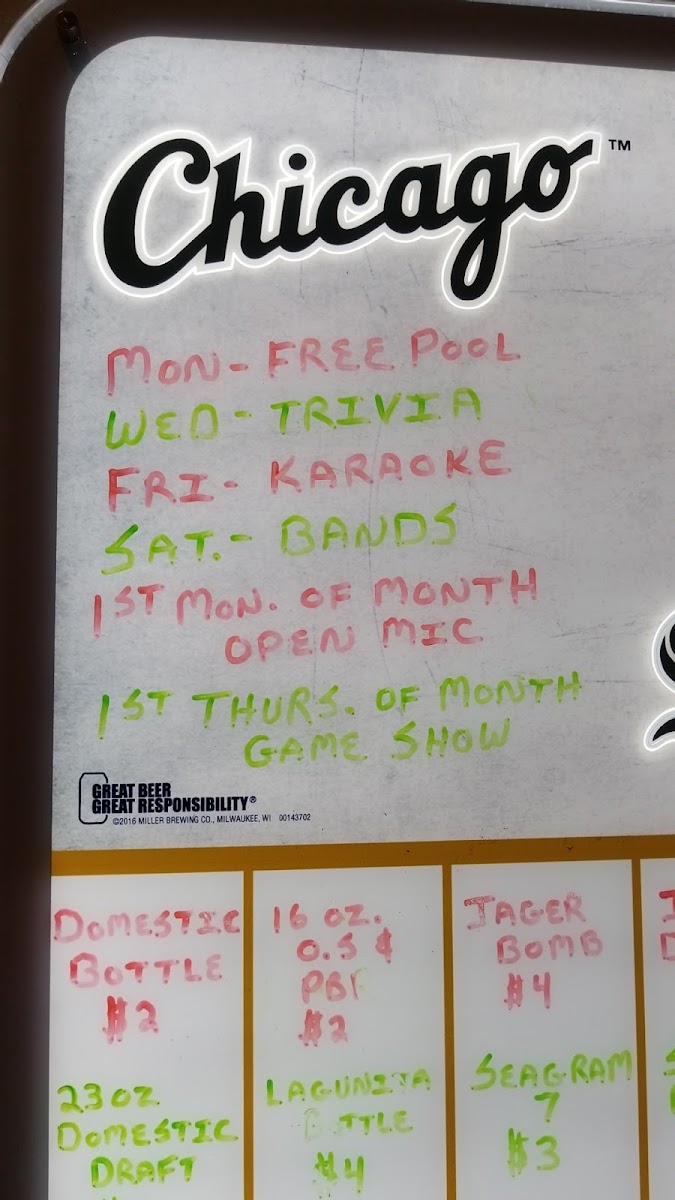 Chicago™
MON- FREE POOL
WED - TRIVIA
FRI- KARAOKE
SAT.- BANDS
1ST MON. OF MONTH
OPEN MIC
1ST THURS. OF MONTH
GAME SHOW
GREAT BEER
GREAT RESPONSIBILITY®
©2016 MILLER BREWING CO., MILWAUKEE, WI 00143702
DOMESTIC
BOTTLE
$2
23 OZ
DOMESTIC
DRAFT
16 OZ.
O.S &
$2
LAGUNITA
BOTTLE
$4
JAGER
BOMB
$4
SEAGRAM
7
$3